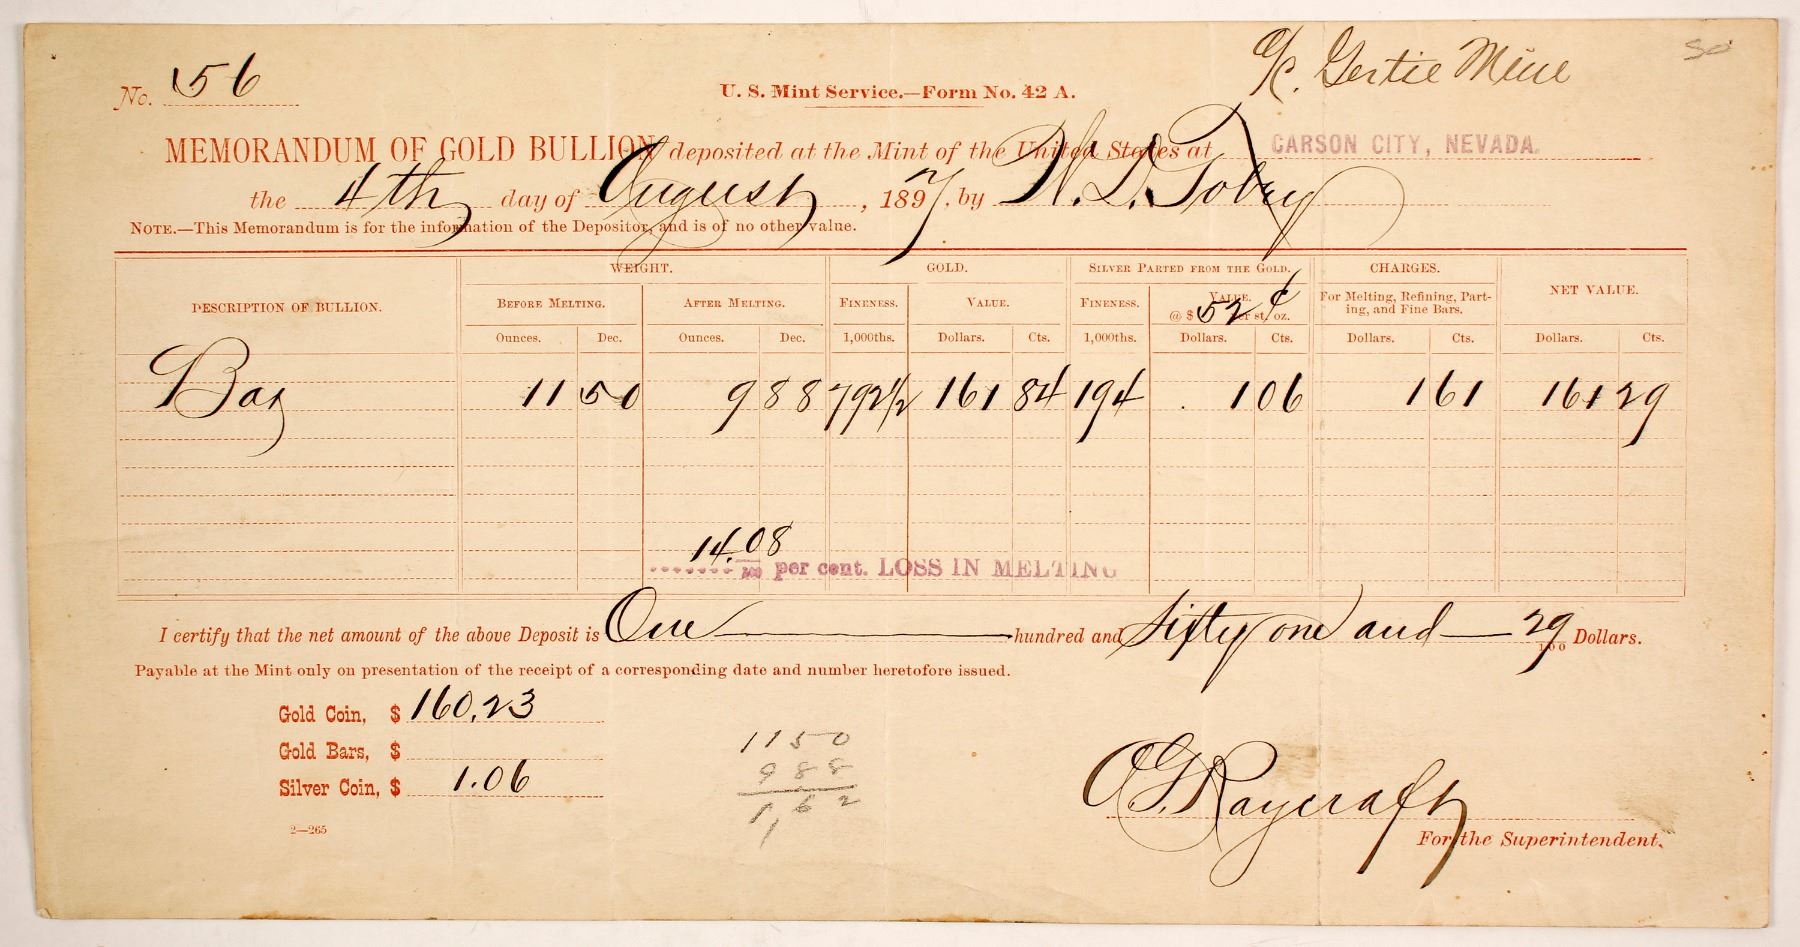 a/c. Gertie Mine
50
No. 56
U. S. Mint Service.—Form No. 42 A.
MEMORANDUM OF GOLD BULLION deposited at the Mint of the United States at CARSON CITY, NEVADA.
the 4th day of August, 1897, by W. D. Tobey
NOTE.—This Memorandum is for the information of the Depositor, and is of no other value.
WEIGHT. GOLD. SILVER PARTED FROM THE GOLD. CHARGES.
DESCRIPTION OF BULLION. BEFORE MELTING. AFTER MELTING. FINENESS. VALUE. FINENESS. VALUE. For Melting, Refining, Part- NET VALUE.
@ $ 52 ¢ per st. oz. ing, and Fine Bars.
Ounces. Dec. Ounces. Dec. 1,000ths. Dollars. Cts. 1,000ths. Dollars. Cts. Dollars. Cts. Dollars. Cts.
Bar 11 50 9 88 792 1/2 161 84 194 1 06 1 61 161 29
14.08
/100 per cent. LOSS IN MELTING
I certify that the net amount of the above Deposit is One hundred and Sixty one and 29/100 Dollars.
Payable at the Mint only on presentation of the receipt of a corresponding date and number heretofore issued.
Gold Coin, $ 160.23
Gold Bars, $
Silver Coin, $ 1.06
2—265
1150
988
1,62
Raycraft
For the Superintendent.